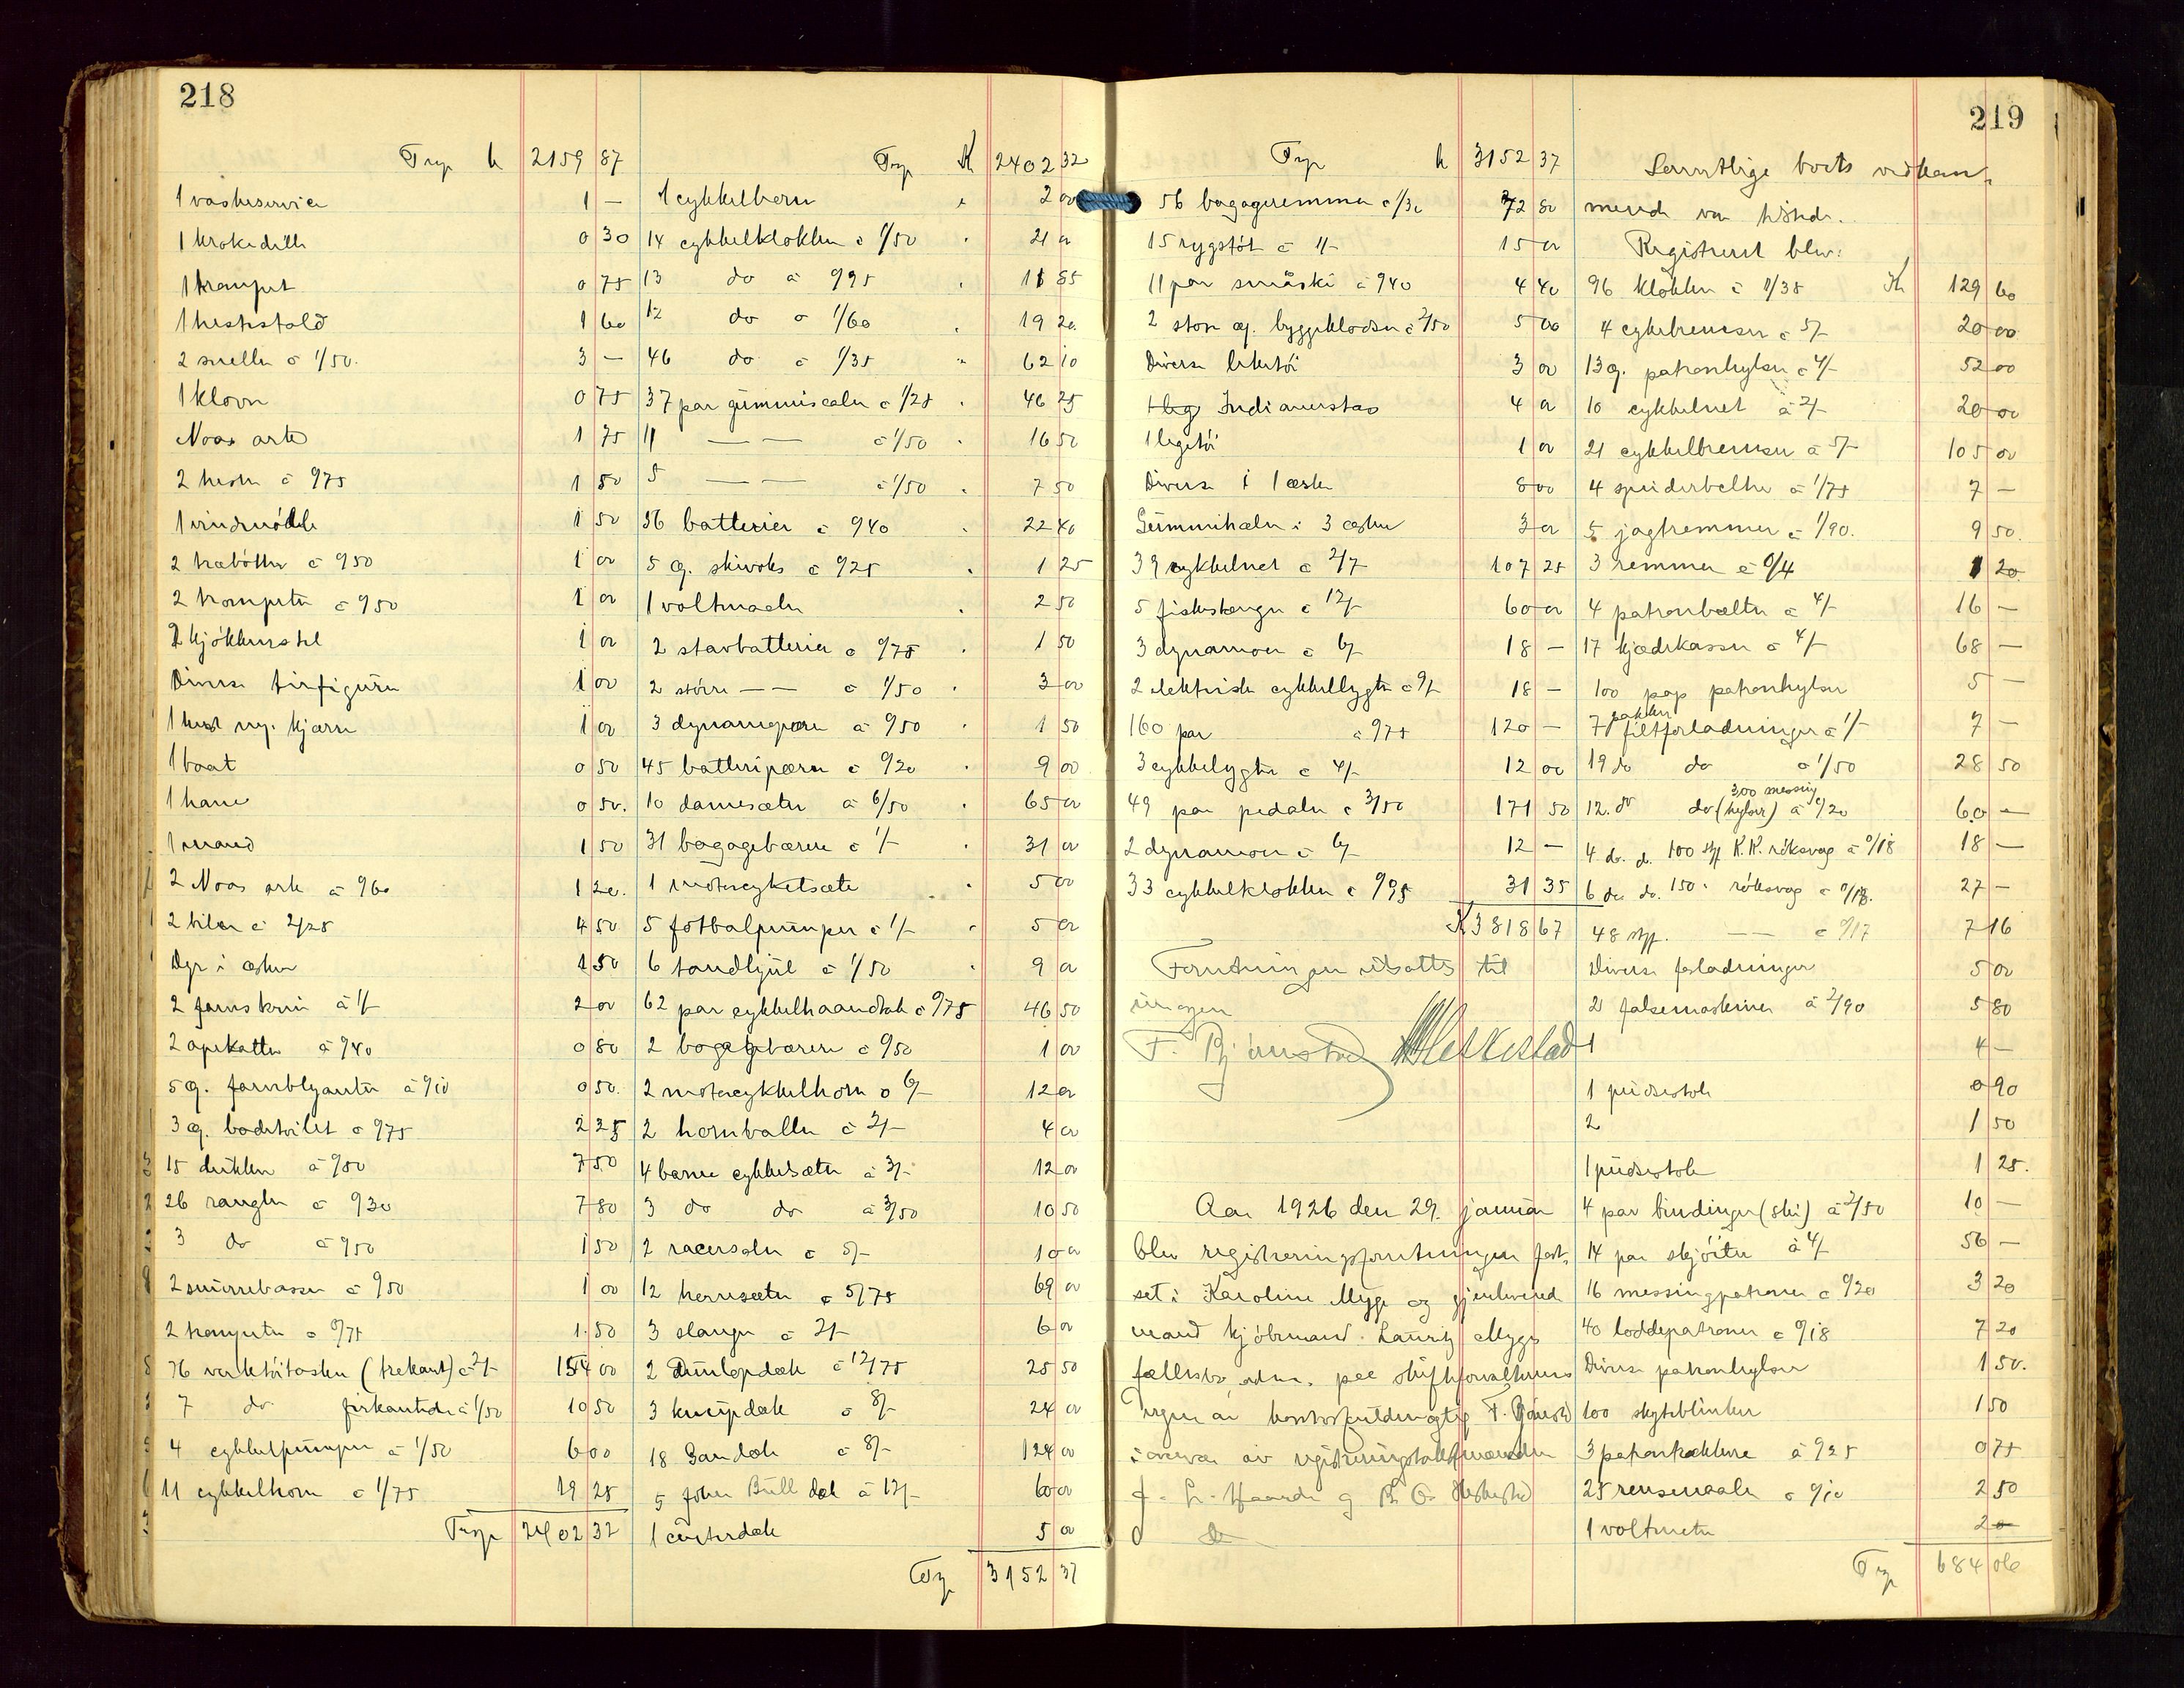 218
Trp k 2159 87
1 vaskeservice 1 -
1 krokedille 0 30
1 trompet 0 75
1 hestestald 1 60
2 sneller à 1/50. 3 -
1 klovn 0 75
Noas ark 1 75
2 hester à 0/75 1 50
1 vindmölle 1 50
2 træbötter à 0/50 1 00
2 trompeter à 0/50 1 00
2 kjökkenstel 1 00
Diverse tinfigurer 1 00
1 hest og kjærre 1 00
1 baat 0 50
1 hane 0 50.
1 mand 1 50
2 Noas ark à 0/60 1 20.
2 biler à 2/25 4 50
Dyr i æsker 1 50
2 farveskrin à 1/- 2 00
2 apekatter à 0/40 0 80
5 æ. farveblyanter à 0/10 0 50.
3 æ. badetoilet à 0/75 2 25
15 dukker à 0/50 7 50
26 rangler à 0/30 7 80
3 do à 0/50 1 50
2 snurrebasser à 0/50 1 00
2 trompeter à 0/75 1.50
76 verktöitasker (trekant) à 2/- 154 00
7 do firkantede à 1/50 10 50
4 cykkelpumper à 1/50 6 00
11 cykkelhorn à 1/75 19 25
Trsp 2402 32
Trsp K 2402 32
1 cykkelhorn " 2 00
14 cykkelklokker à 1/50 " 21 00
13 do à 0/95 " 11 85
12 do à 1/60 " 19 20.
46 do à 1/35 " 62 10
37 par gummisaaler à 1/25 " 46 25
11 — — à 1/50 " 16 50
5 — — à 1/50 " 7 50
56 batterier à 0/40 " 22 40
5 æ. skivoks à 0/25 " 1 25
1 voltmaaler " 2 50
2 stavbatterier à 0/75 " 1 50
2 större — — à 1/50 " 3 00
3 dynamopære à 0/50 " 1 50
45 batteripærer à 0/20 " 9 00
10 damesæter à 6/50 " 65 00
31 bagagebærere à 1/- " 31 00
1 motorcykelsæte " 5 00
5 fotbalpumper à 1/- " 5 00
6 tandhjul à 1/50 " 9 00
62 par cykkelhaandtak à 0/75 46 50
2 bagagebærere à 0/50 1 00
2 motorcykkelhorn à 6/- 12 00
2 hornballer à 2/- 4 00
4 barnecykkelsæter à 3/- 12 00
3 do do à 3/50 10 50
2 racersaler à 5/- 10 00
12 herresæter à 5/75 69 00
3 slanger à 2/- 6 00
2 Dunlopdæk à 12/75 25 50
3 kneipdæk à 8/- 24 00
18 dæk à 8/- 124 00
5 John Bull dæk à 12/- 60 00
1 dæk 5 00
Trsp 3152 37
219
Trsp k 3152 37
56 bagageremmer à 1/30 72 80
15 rygstöt à 1/- 15 00
11 par smaaski à 0/40 4 40
2 store æ. byggeklodser à 2/50 5 00
Diverse leketöi 3 00
Indianerstas 4 00
1 legetöi 1 00
Diverse i 1 æske 8 00
Gummihæler i 3 æsker 3 00
39 cykkelnet à 2/75 107 25
5 fiskestænger à 12/- 60 00
3 dynamoer à 6/- 18 -
2 elektriske cykkellygter à 9/- 18 -
160 par à 0/75 120 -
3 cykkelygter à 4/- 12 00
49 par pedaler à 3/50 171 50
2 dynamoer à 6/- 12 -
33 cykkelklokker à 0/95 31 35
K 3818 67
Forretningen utsattes til
imorgen
F. Bjönnstad Heskestad
Aar 1926 den 29. januar
blev registreringsforretningen fort-
sat i Karoline Mygs og gjenlevende
mand kjöbmand Lauritz Mygs
fællesbo, adm. paa skifteforvalterens
vegne av kontorfuldmægtig F. Bjönnstad
i overvær av registreringstakstmændene
J. L. Haarde og Heskestad
Samtlige boets vedkom-
mende var tilstede.
Registrert blev:
96 klokker à 1/35 K 129 60
4 cykelbremser à 5/- 20 00
13 æ. patronhylser à 4/- 52 00
10 cykkelnet à 2/- 20 00
21 cykkelbremser à 5/- 105 00
4 speiderbelter à 1/75 7 -
5 jagtremmer à 1/90. 9 50.
3 remmer à 0/4 1 20
4 patronbælter à 4/- 16 -
17 kjædekasser à 4/- 68 -
100 pap patronhylser 5 -
7 pakker filtforladninger à 1/- 7 -
19 do do à 1/50 28 50
12. do do (300 messing hylser) à 0/20 60 -
4 do. d. 100 stk K.K. röksvag à 0/18 18 -
6 do do. 150 " röksvag à 0/18. 27 -
48 stk. — — à 0/17 7 16
Diverse forladninger 5 00
2 falsemaskiner à 2/90 5 80
1 4 -
1 pudsestok 0 90
2 1 50
1 pudsestok 1 25.
4 par bindinger (ski) à 2/50 10 -
14 par skjöiter à 4/- 56 -
16 messingpatroner à 0/20 3 20
40 loddepatroner à 0/18 7 20
Diverse patronhylser 1 50.
100 skyteblinker 1 50
3 patrontrækkere à 0/25 0 75
25 rensenaale à 0/10 2 50
1 voltmeter 2 -
Trsp 684 06